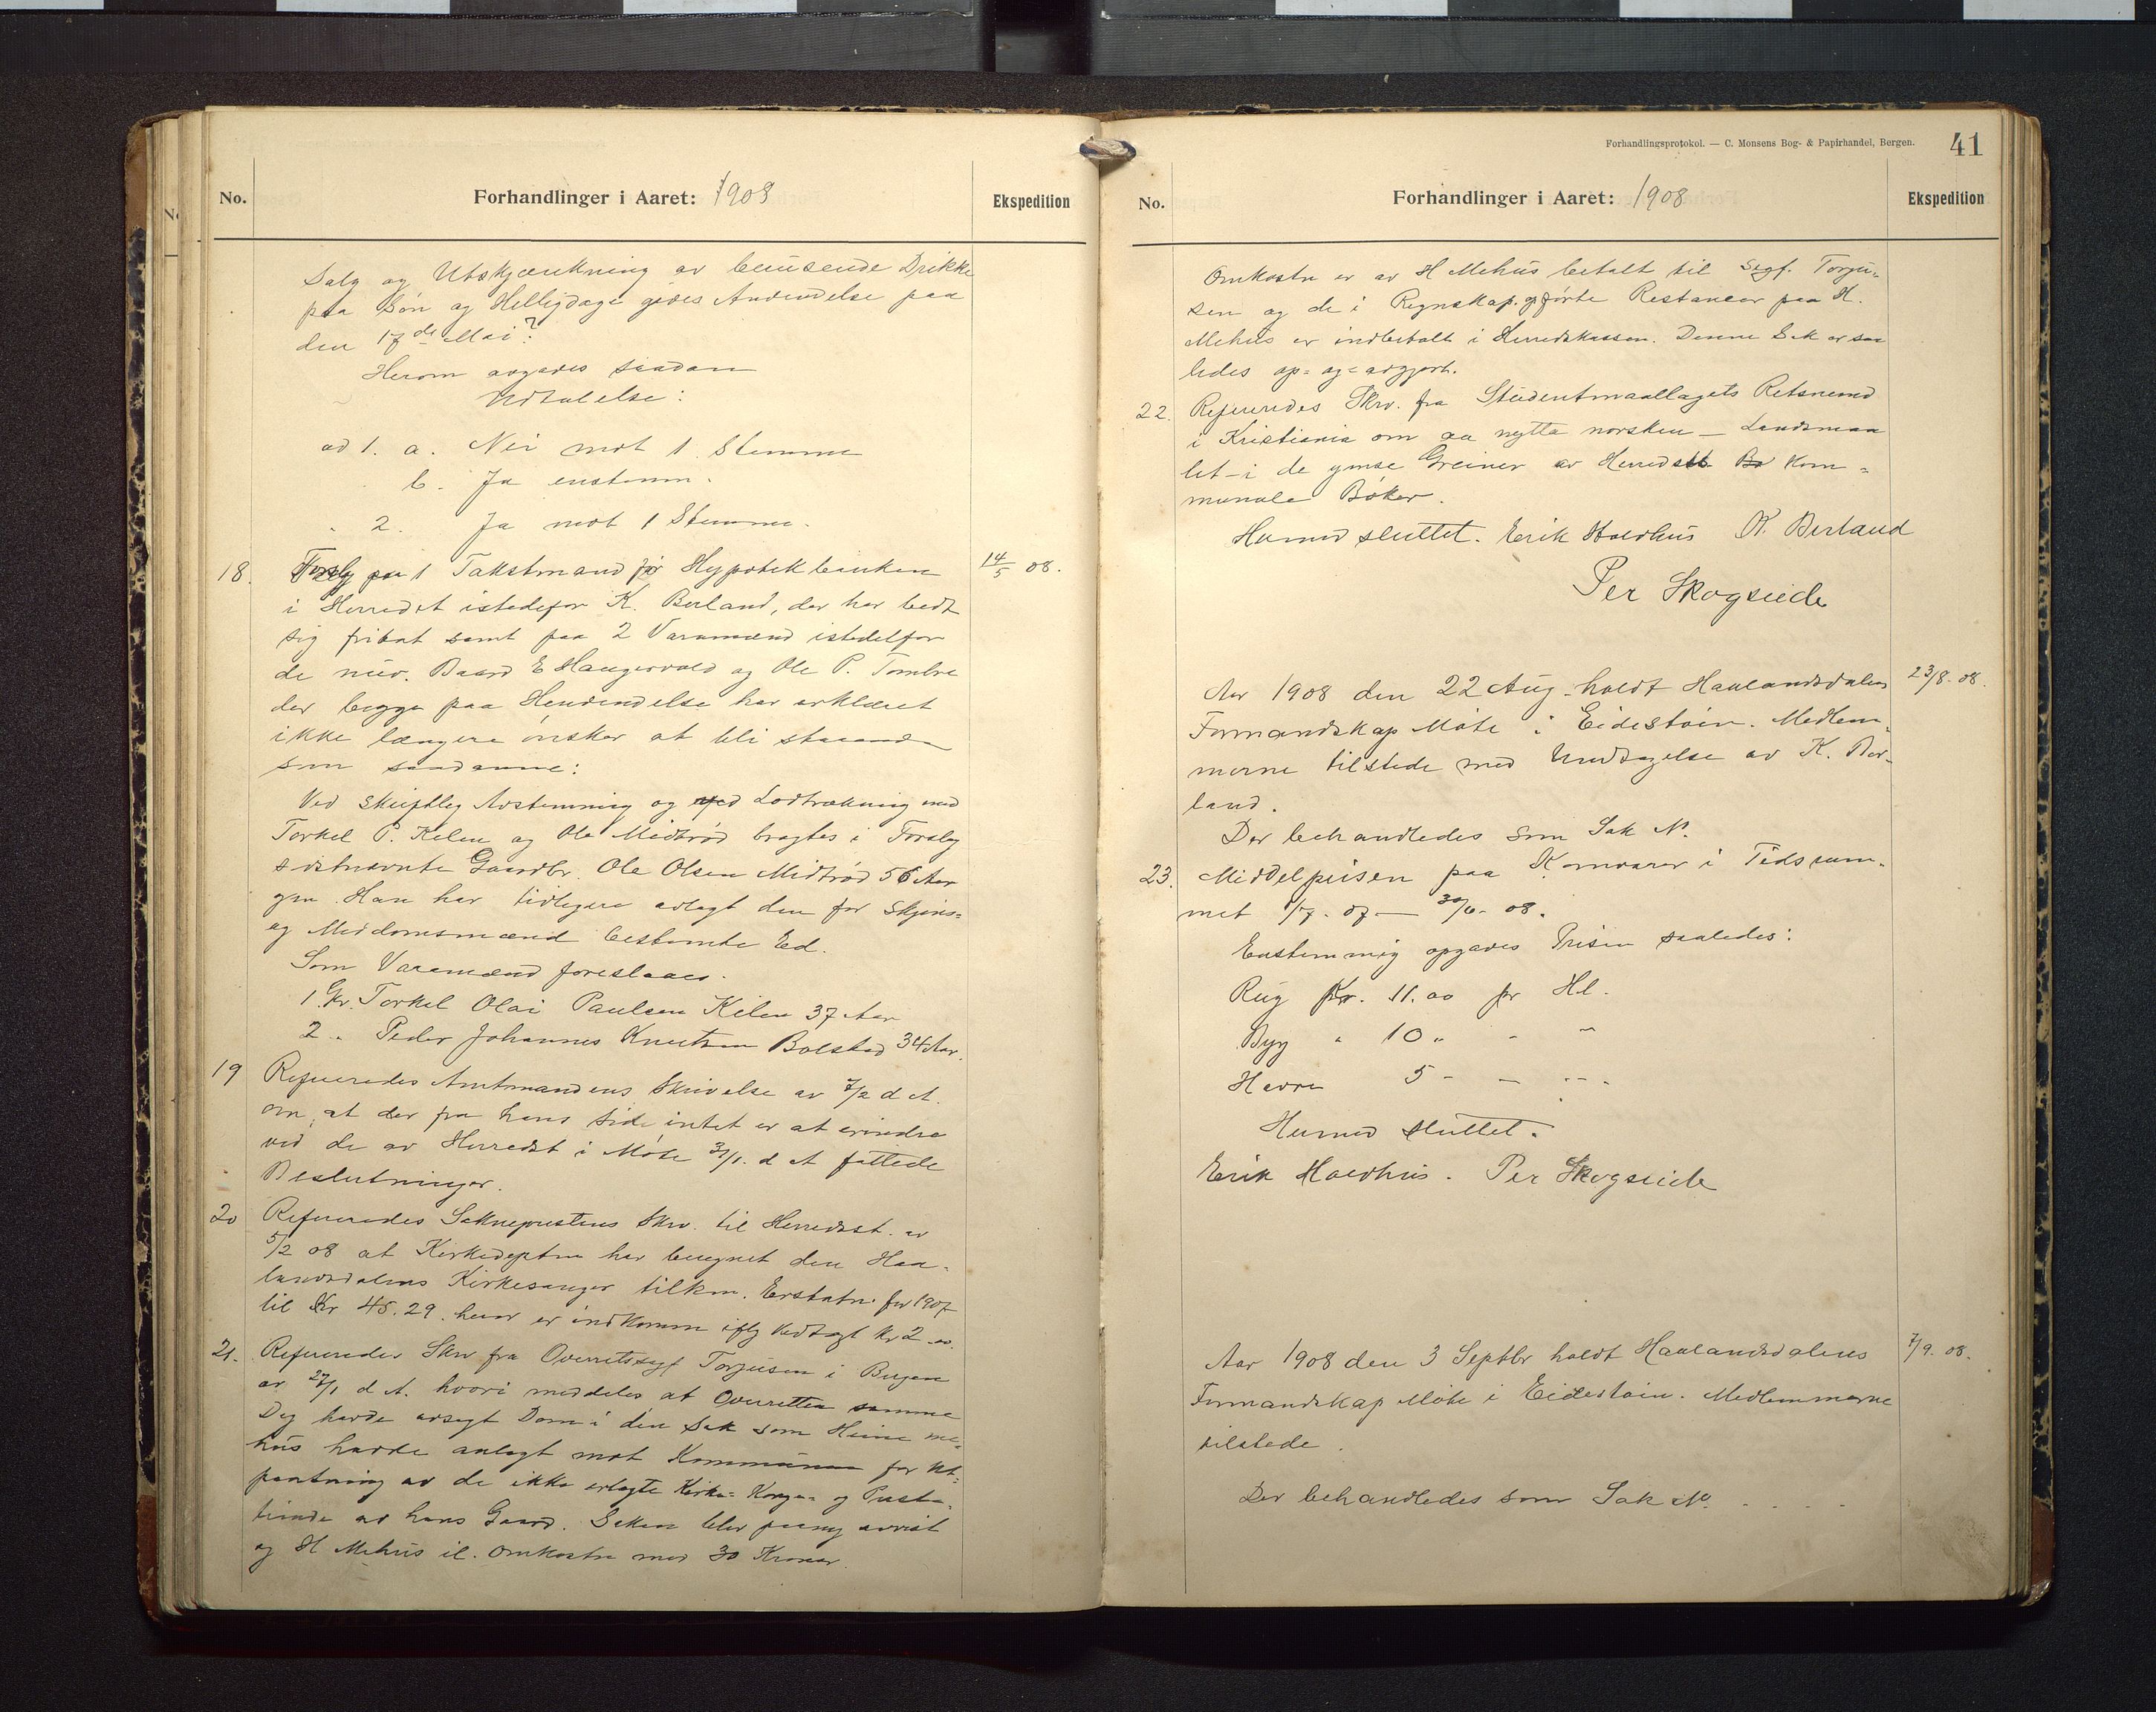 No.
Forhandlinger i Aaret: 1908
Ekspedition
Salg og Utskjænkning av berusende Drikke
paa Søn og Helligdage gives Anvendelse paa
den 17de Mai?
Herom avgaves saadan
Udtalelse:
ad 1. a. Nei mot 1 Stemme
b. Ja enstemm.
" 2. Ja mot 1 Stemme.
18. Forslg paa 1 Takstmand for Hypotekbanken
14/5 08.
i Herredet istedefor K. Berland, der har bedt
sig fritat samt paa 2 Varamænd istedetfor
de nuv. Baard E Haugervold og Ole P. Tombre
der begge paa Henvendelse har erklæret
ikke længere ønsker at bli staaende
som saadanne:
Ved skriftlig Avstemning og ved Lodtrækning med
Torkel P. Kilen og Ole Midtrød bragtes i Forslag
sistnævnte Gaardbr. Ole Olsen Midtrød 56 Aar
gm. Han har tidligere avlagt den for Skjøns=
og Meddomsmænd bestemte Ed.
Som Varamænd foreslaaes.
1. Gbr. Torkel Olai Paulsen Kilen 37 Aar
2. " Peder Johannes Knutsen Bolstad 34 Aar.
19 Refereredes Amtmandens Skrivelse av 7/2 d A.
om, at der fra hans Side intet er at erindre
ved de av Herredst i Møte 31/1. d A fattede
Beslutninger.
20 Refereredes Sokneprestens Skr. til Herredsst. av
5/2 08 at Kirkedeptm har beregnet den Haa-
landsdalens Kirkesanger tilkm. Erstatn. for 1907
til Kr 45.29. herav er indkomm iflg Vedtagt Kr 2.00.
21. Refereredes Skr fra Overretssagf Torjusen i Bergen
av 27/1 d A. hvori meddeles at Overretten samme
Dag havde avsagt Dom i den Sak som Heine Me-
hus havde anlagt mot Kommunen for Ut-
pantning av de ikke erlagte Kirke= Konge= og Preste-
tiende av hans Gaard. Saken blev paany avvist
og H Mehus il. Omkostn med 30 Kroner.
Forhandlingsprotokol. — C. Monsens Bog- & Papirhandel, Bergen.
41
No.
Forhandlinger i Aaret: 1908
Ekspedition
Omkostn er av H Mehus betalt til Sagf. Torju-
sen og de i Regnskap. opførte Restancer paa H.
Mehus er indbetalt i Herredskassen. Denne Sak er saa
ledes op= og= avgjort.
22. Refereredes Skrv. fra Studentmaallagets Retsnemd
i Kristiania om aa nytta norsken — Landsmaa
let – i de ymse Greiner av Herredsst Bø Kom=
munale Bøker.
Hermed sluttet. Erik Holdhus K. Berland
Per Skogseide
Aar 1908 den 22 Aug. holdt Haalandsdalens
23/8. 08.
Formandskap Møte i Eidestøin. Medlem-
merne tilstede med Undtagelse av K. Ber-
land.
Der behandledes som Sak No.
23. Middelprisen paa Kornvarer i Tidsrum-
met 1/7. 07 — 30/6. 08.
Enstemmig opgaves Prisen saaledes:
Rug Kr. 11.00 pr Hl.
Byg " 10 " - "
Havre 5 - - - - -
Hermed sluttet.
Erik Holdhus. Per Skogseide
Aar 1908 den 3 Septbr holdt Haalandsdalens
7/9. 08.
Formandskap Møte i Eidestøin. Medlemmerne
tilstede.
Der behandledes som Sak No. . . . .